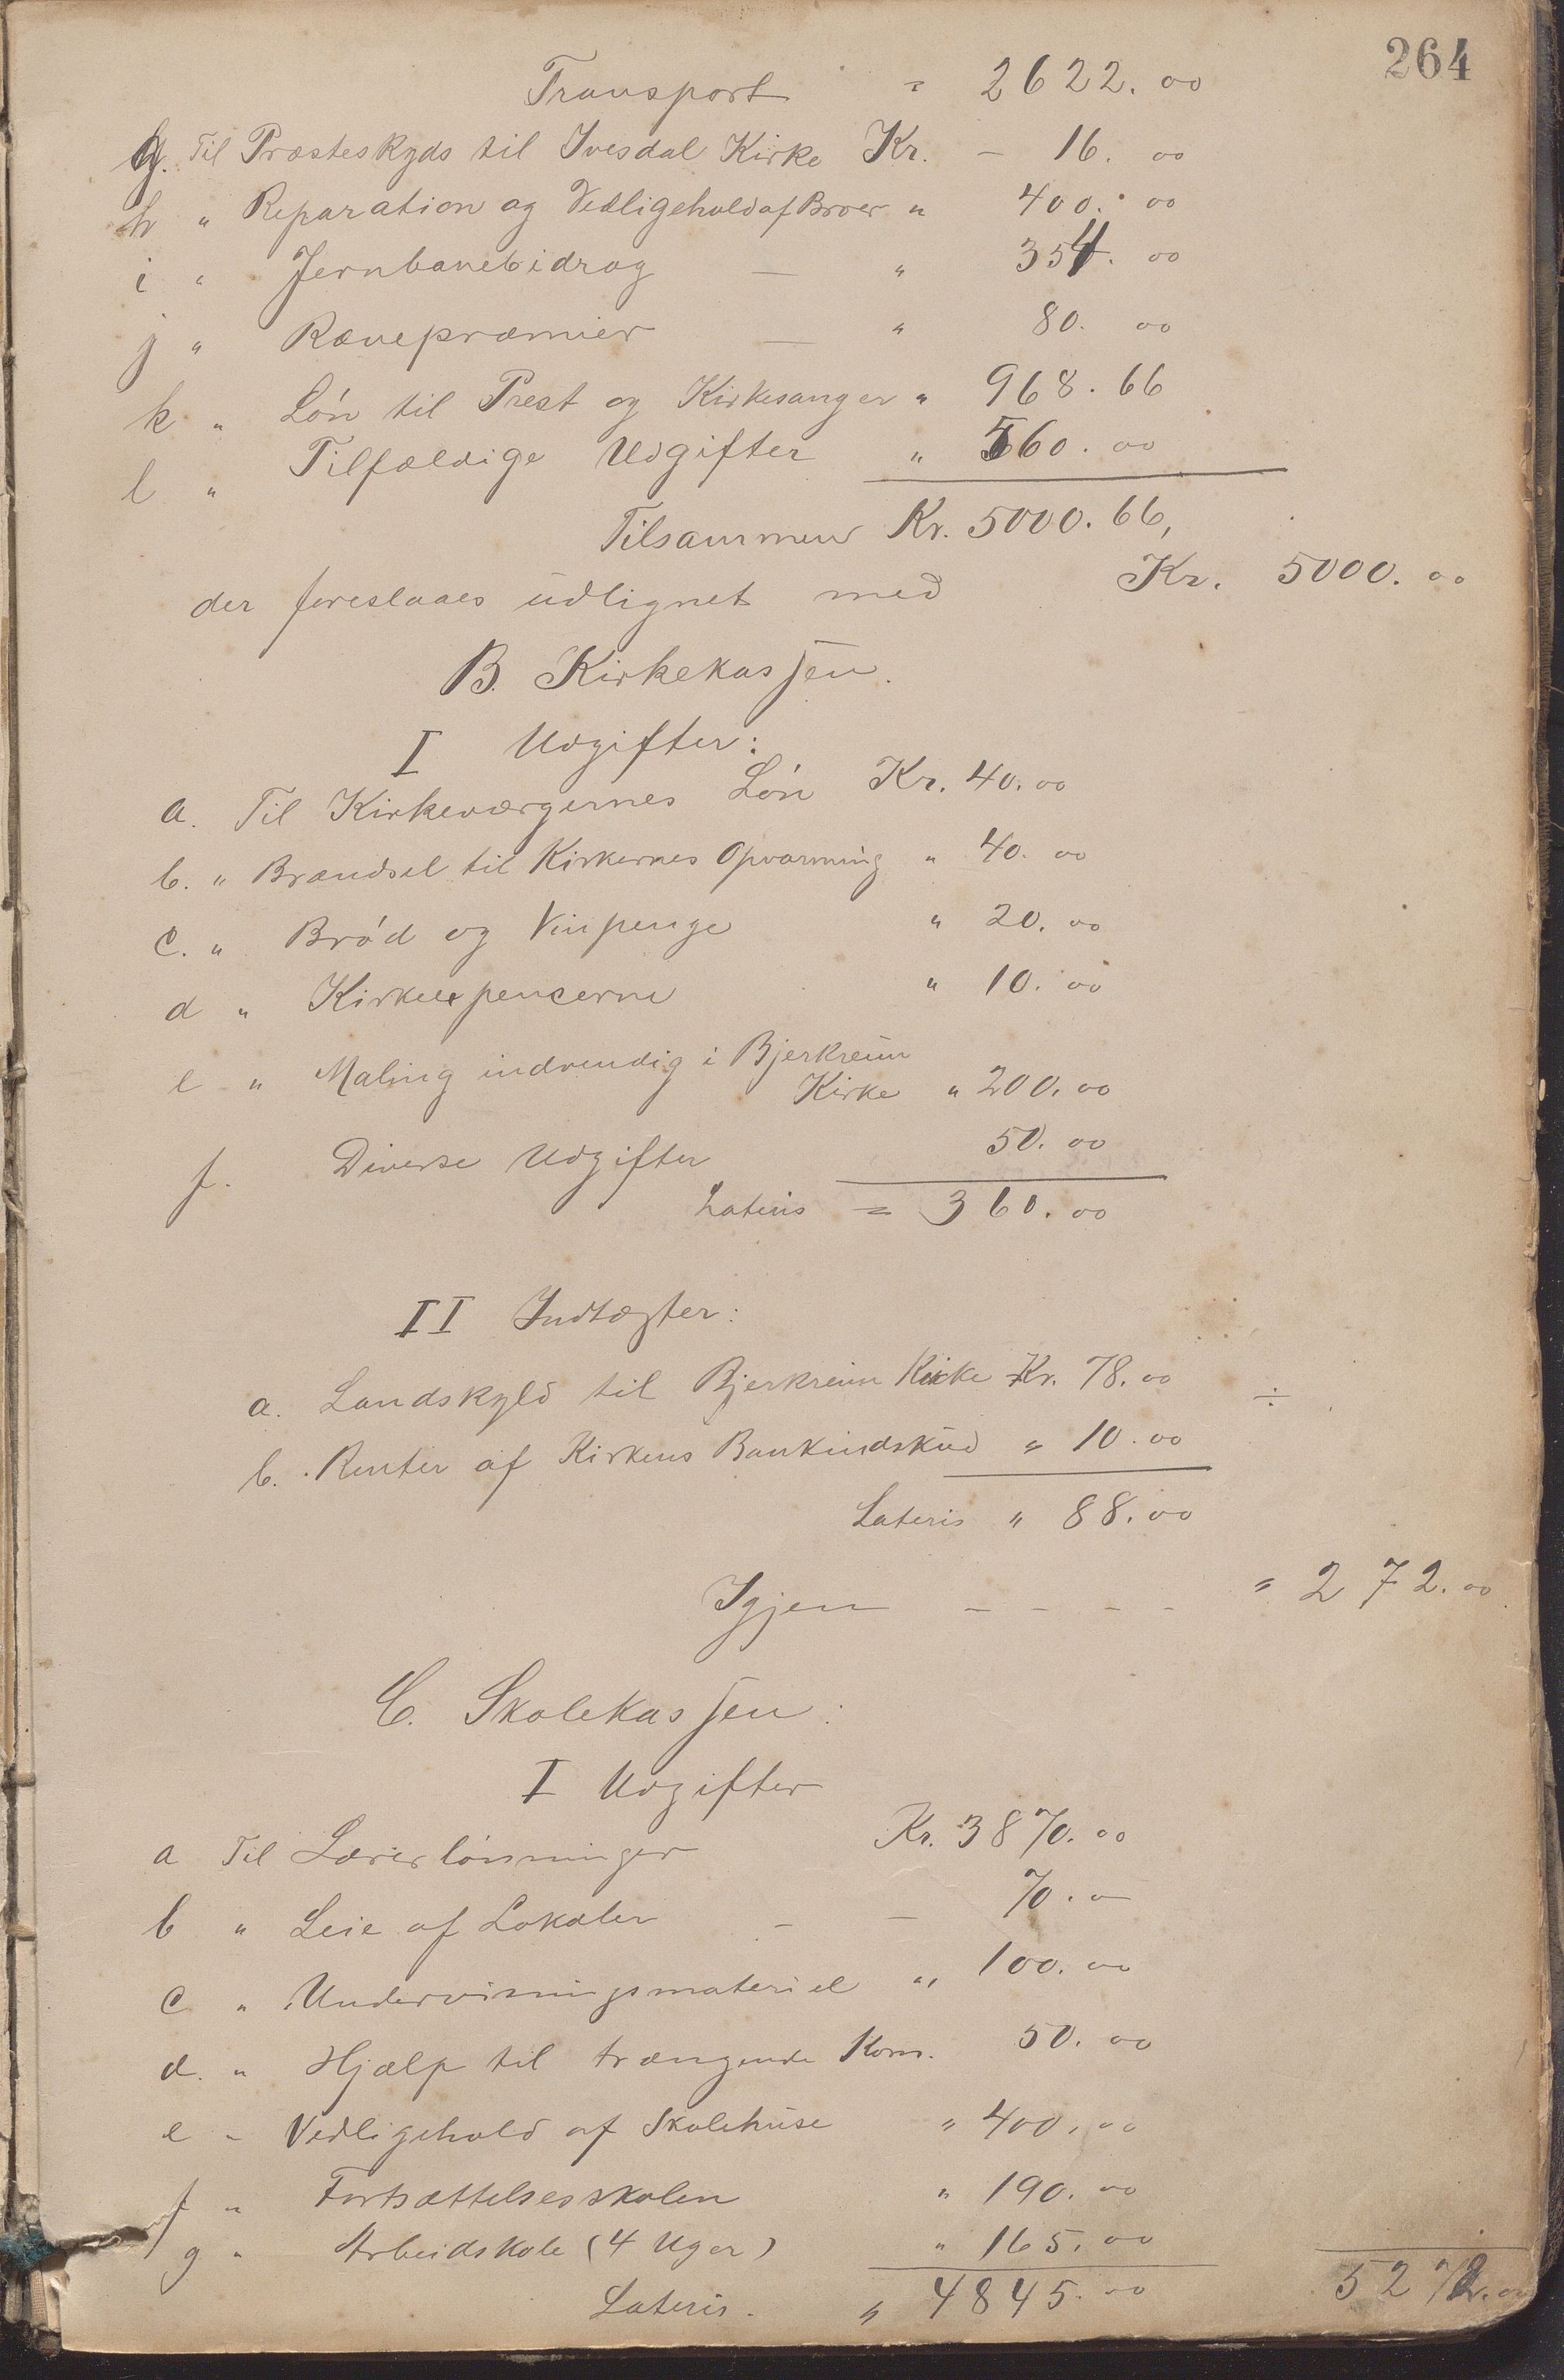 264
Transport = 2622.00
g. Til Præsteskyds til Ivesdal Kirke Kr. – 16.00
h " Reparation og Vedligehold af Broer " 400.00
i " Jernbanebidrag — " 354.00
j " Rævepræmier — " 80.00
k " Løn til Prest og Kirkesanger " 968.66
l " Tilfældige Udgifter " 560.00
Tilsammen Kr. 5000.66,
der foreslaaes udlignet med Kr. 5000.00
B. Kirkekassen.
I Udgifter:
a. Til Kirkeværgernes Løn Kr. 40.00
b. " Brændsel til Kirkernes Opvarming " 40.00
c. " Brød og Vinpenge " 20.00
d " Kirkeexpencerne " 10.00
e " Maling indvendig i Bjerkreim
Kirke " 200.00
f. Diverse Udgifter 50.00
Lateris = 360.00
II Indtægter:
a. Landskyld til Bjerkreim Kirke Kr. 78.00 ÷
b. Renter af Kirkens Bankindskud " 10.00
Lateris " 88.00
Igjen – – – – = 272.00
C. Skolekassen:
I Udgifter
a Til Lærerlønninger Kr. 3870.00
b " Leie af Lokaler – – 70.00
c " Undervisningsmateriel " 100.00
d. " Hjælp til trængende Kom. 50.00
e – Vedligehold af Skolehuse " 400.00
f " Fortsættelsesskolen " 190.00
g " Arbeidskole (4 Uger) " 165.00
Lateris. " 4845.00 5272.00